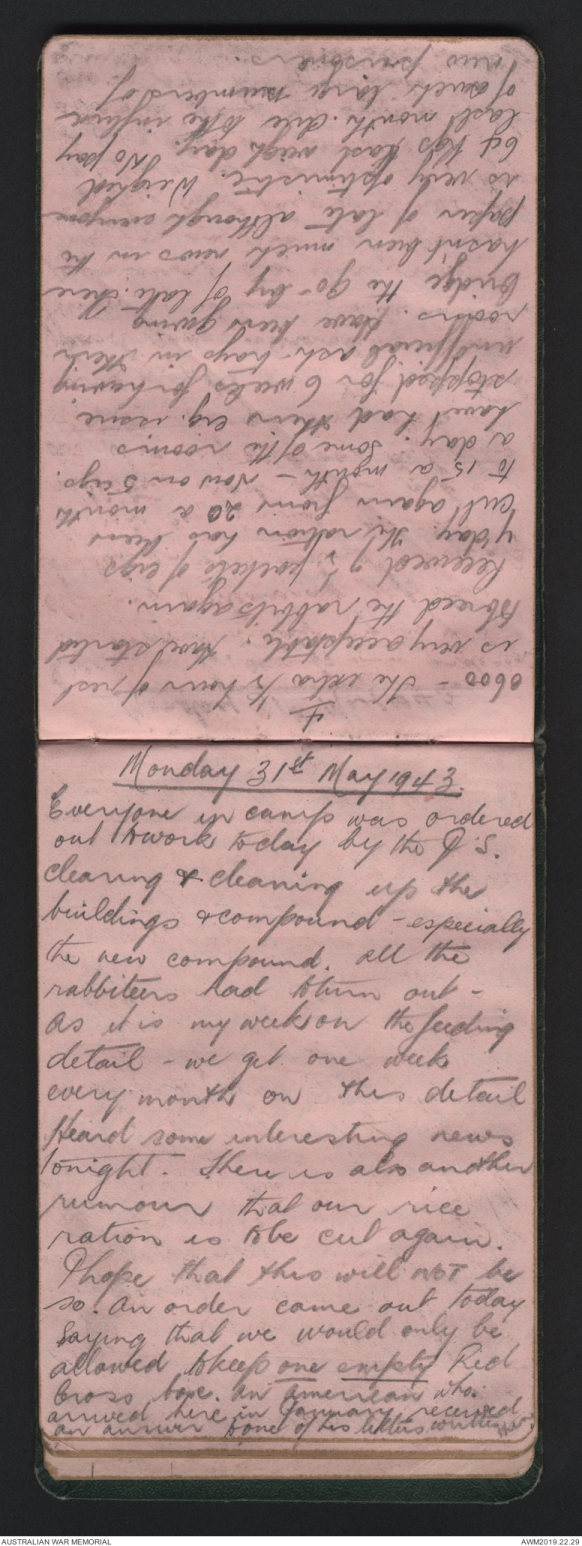 0600 – The extra ½ hour of rest
is very acceptable. Have started
to breed the rabbits again.
Received 9½ packets of cigs
y'day. The ration has been
cut again from 20 a month
to 15 a month – now on 5 cigs.
a day. Some of the rooms
havn't had theirs eg. issue
stopped for 6 weeks for having
unofficial ash-trays in their
rooms. Have been giving
bridge the go-by of late. There
hasn't been much news in the
paper of late although everyone
is very optimistic. Weighed
64 kgs last weigh day. No pay
last month due to the influx
of such large numbers of
new prisoners.
Monday 31st May 1943.
Everyone in camp was ordered
out to work today by the J's.
clearing & cleaning up the
buildings & compound – especially
the new compound. All the
rabbiteers had to turn out –
as it is my week on the feeding
detail – we get one week
every month on this detail
Heard some interesting news
tonight. There is also another
rumour that our rice
ration is to be cut again.
I hope that this will NOT be
so. An order came out today
saying that we would only be
allowed to keep one empty Red
Cross box. An American who
arrived here in January received
an answer to one of his letters written
AUSTRALIAN WAR MEMORIAL
AWM2019.22.29